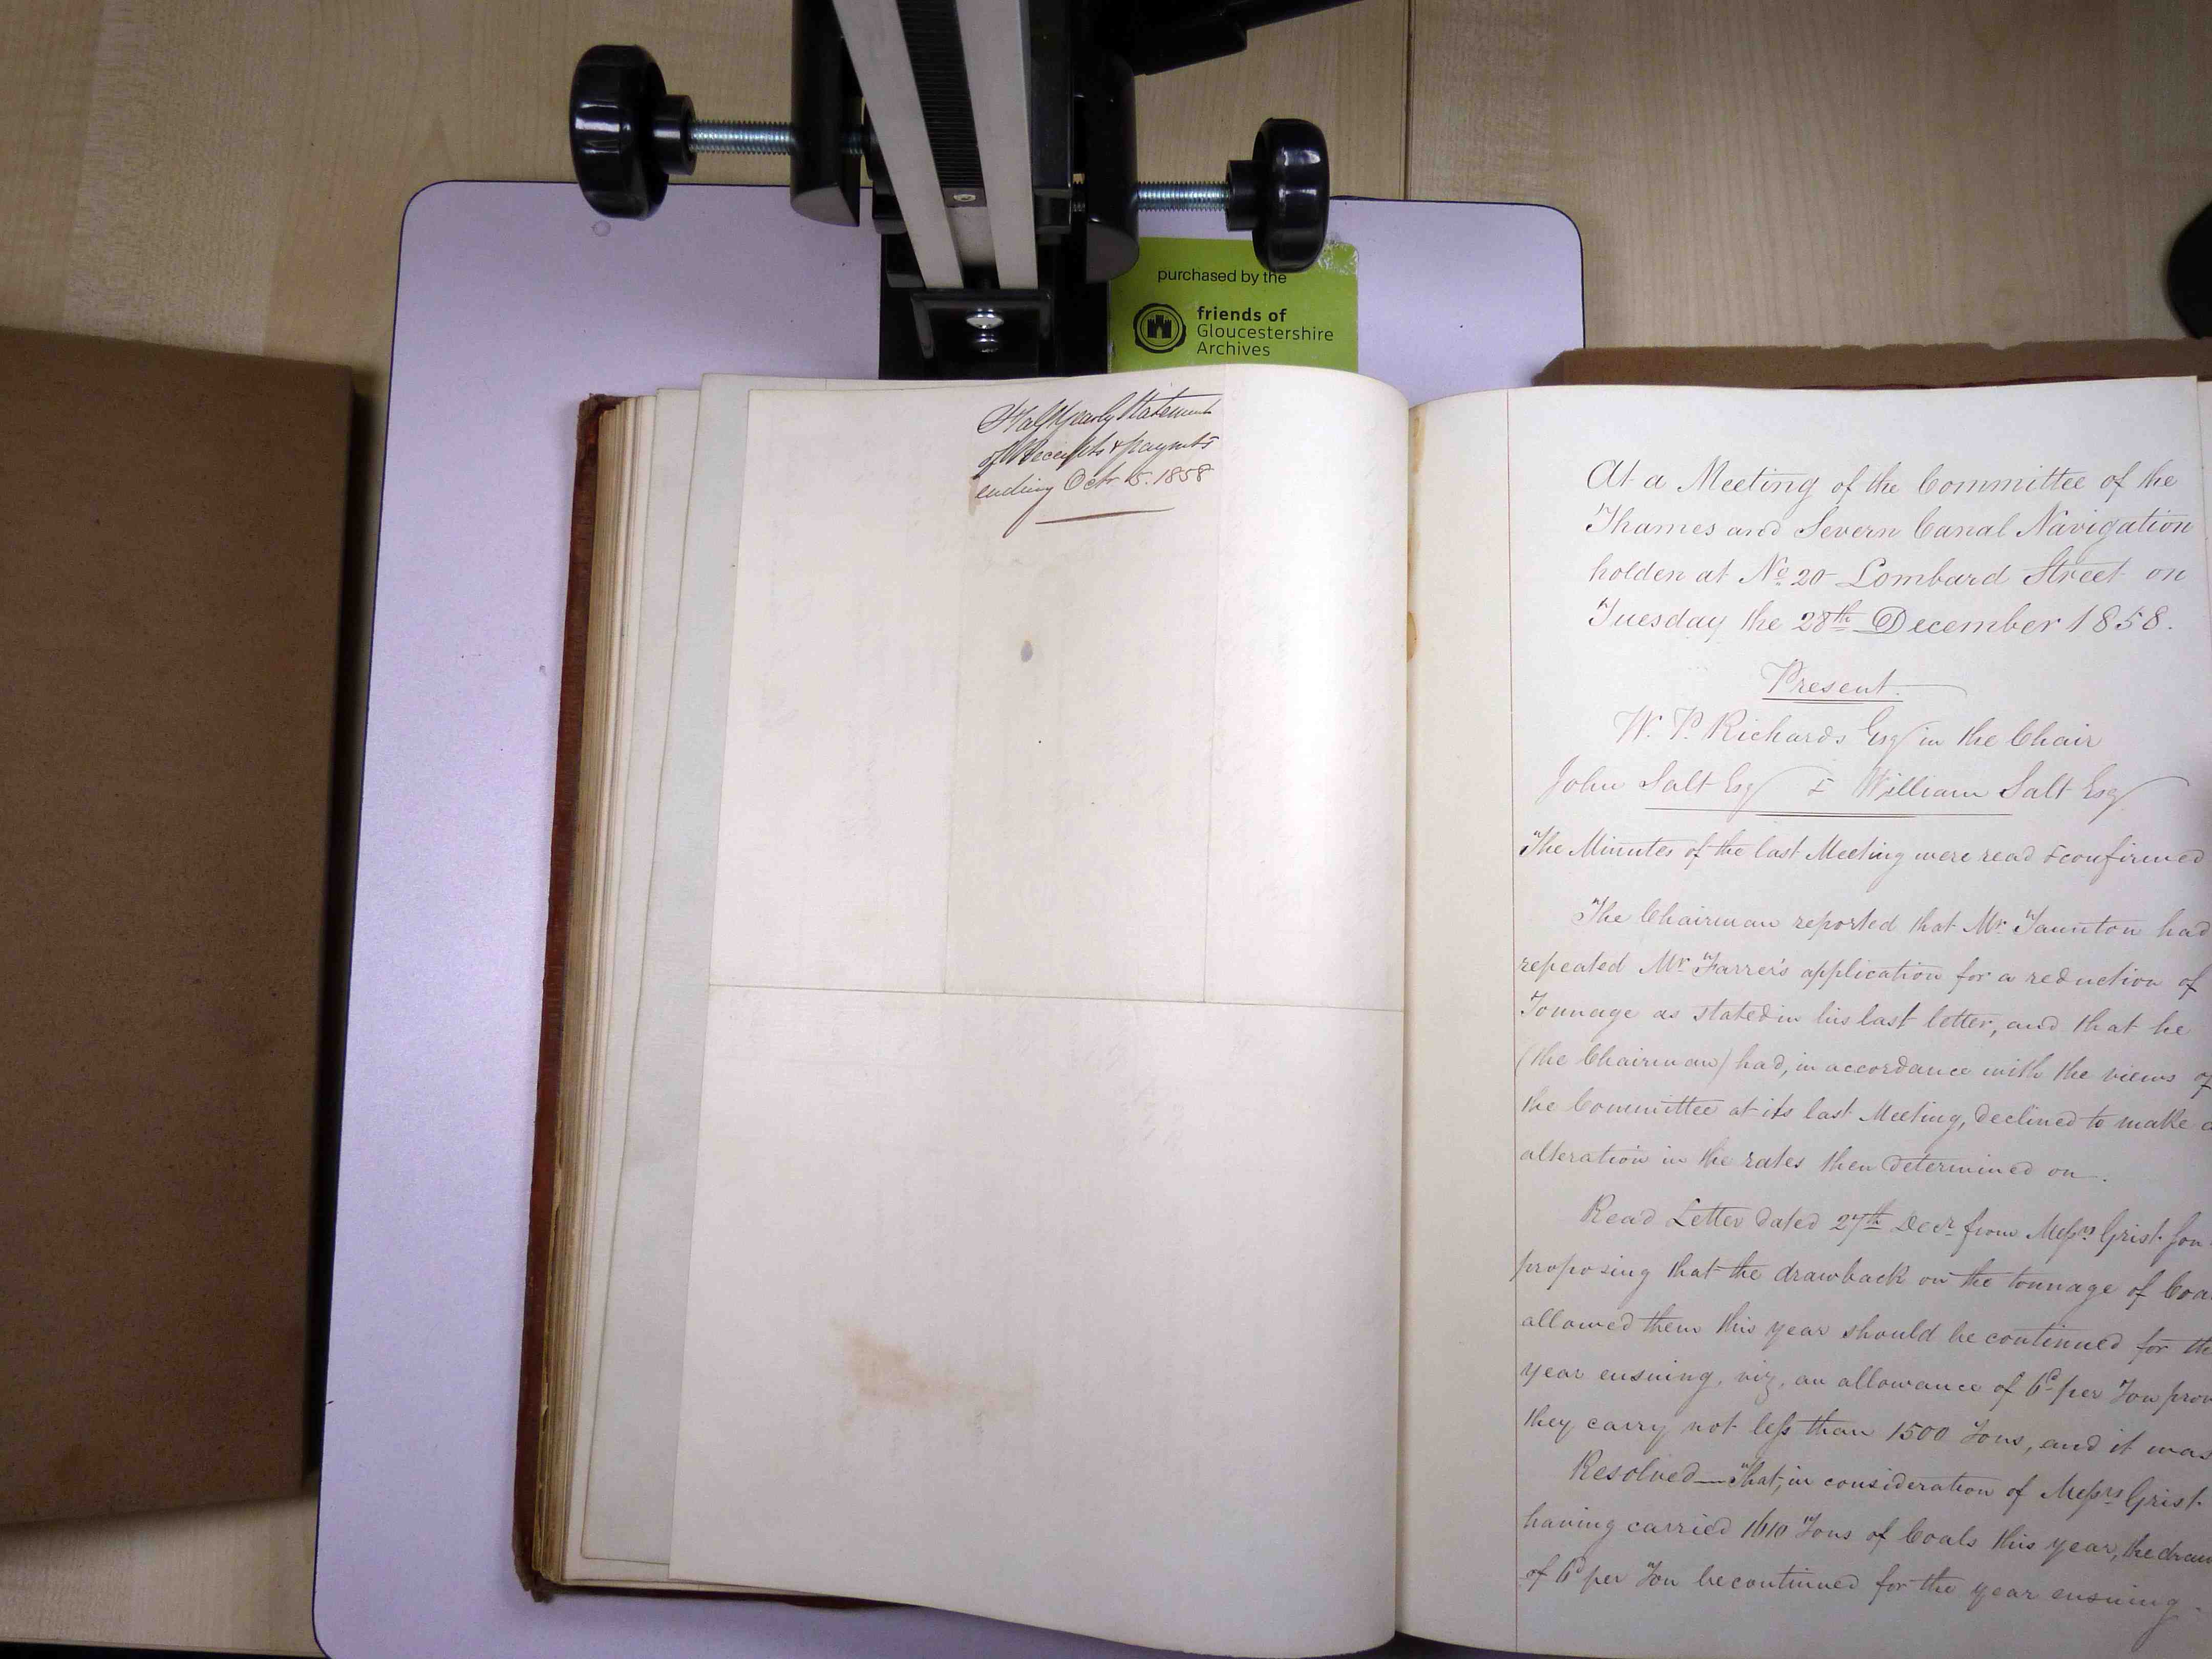 purchased by the
friends of
Gloucestershire
Archives
Half Yearly Statement
of Receipts & paymts
ending Octr 15. 1858
At a Meeting of the Committee of the
Thames and Severn Canal Navigation
holden at No. 20 Lombard Street on
Tuesday the 28th December 1858.
Present.
W. P. Richards Esq in the Chair
John Salt Esq & William Salt Esq
The Minutes of the last Meeting were read & confirmed
The Chairman reported that Mr. Taunton had
repeated Mr Farrer's application for a reduction of
Tonnage as stated in his last letter, and that he
(the Chairman) had, in accordance with the views of
the Committee at its last Meeting, declined to make
alteration in the rates then determined on.
Read Letter dated 27th Decr from Messrs Grist
proposing that the drawback on the tonnage of
allowed them this year should be continued for
year ensuing, viz, an allowance of 6d per Ton
they carry not less than 1500 Tons, and it was
Resolved—That, in consideration of Messrs Grist
having carried 1610 Tons of Coals this year, the
of 6d per Ton be continued for the year ensuing.